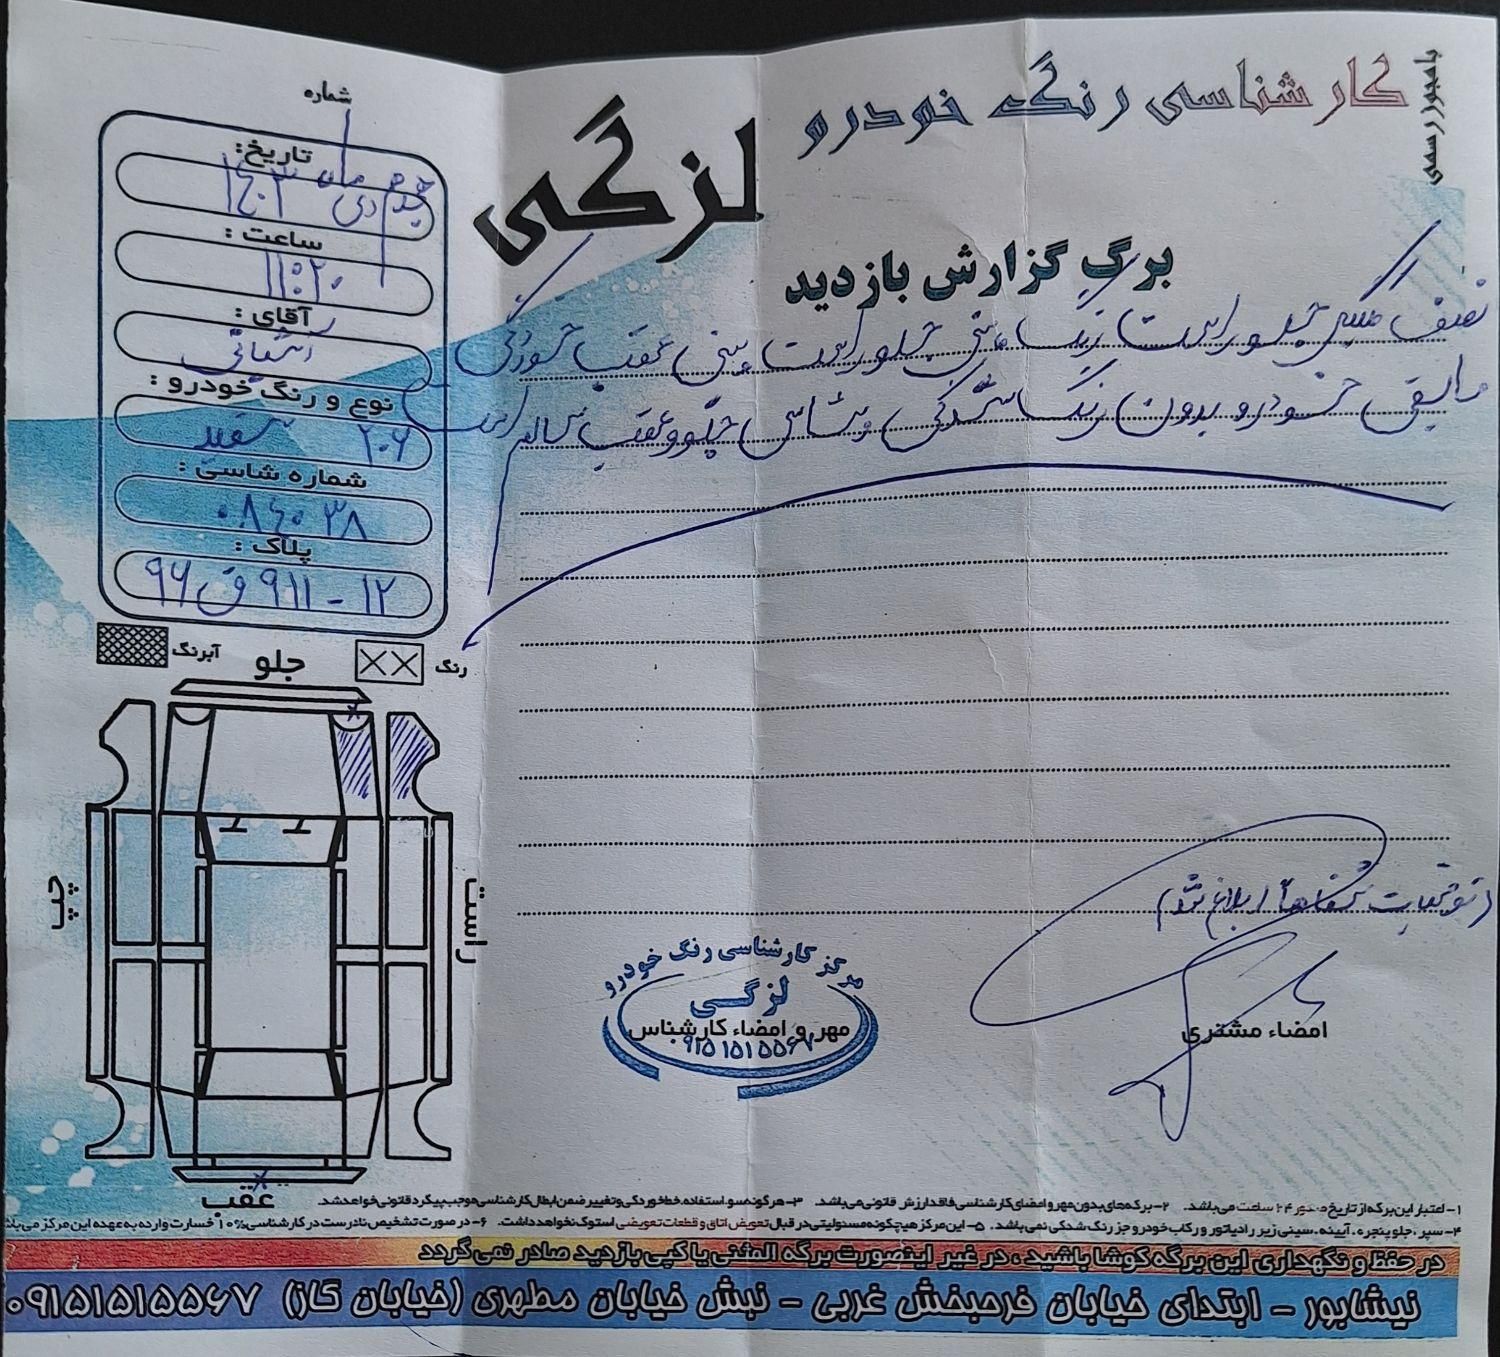 با مجوز رسمی
کارشناسی رنگ خودرو
لزگی
برگ گزارش بازدید
شماره
تاریخ:
چهاردهم دی ماه ۱۴۰۳
ساعت :
۱۱:۲۰
آقای :
نوع و رنگ خودرو :
۲۰۶ سفید
شماره شاسی :
۰۸۴۰۳۸
پلاک :
۱۲ - ۹۱۱ ق ۹۶
نصف گلگیر جلو راست رنگ سینی جلو راست سینی عقب خوردگی
مابقی خودرو بدون رنگ شدگی و شاسی جلو و عقب سالم است
رنگ
آبرنگ
جلو
چپ
راست
عقب
(توضیحات شفاها ابلاغ شد)
مرکز کارشناسی رنگ خودرو
لزگی
مهر و امضاء کارشناس
۹۱۵ ۱۵۱ ۵۵۶۷
امضاء مشتری
۱- اعتبار این برگه از تاریخ صدور ۲۴ ساعت می‌باشد. ۲- برگه‌های بدون مهر و امضای کارشناسی فاقد ارزش قانونی می‌باشد. ۳- هرگونه سوء استفاده، خط خوردگی و تغییر ضمن ابطال کارشناسی موجب پیگرد قانونی خواهد شد.
۴- سپر، جلو پنجره، آیینه، سینی زیر رادیاتور و رکاب خودرو جز رنگ شدگی نمی‌باشد. ۵- این مرکز هیچگونه مسئولیتی در قبال تعویض اتاق و قطعات تعویضی استوک نخواهد داشت. ۶- در صورت تشخیص نادرست در کارشناسی ۱۰٪ خسارت وارده به عهده این مرکز می‌باشد
در حفظ و نگهداری این برگه کوشا باشید ، در غیر اینصورت برگه المثنی یا کپی بازدید صادر نمی گردد
نیشابور - ابتدای خیابان فرحبخش غربی - نبش خیابان مطهری (خیابان گاز) ۰۹۱۵۱۵۱۵۵۶۷